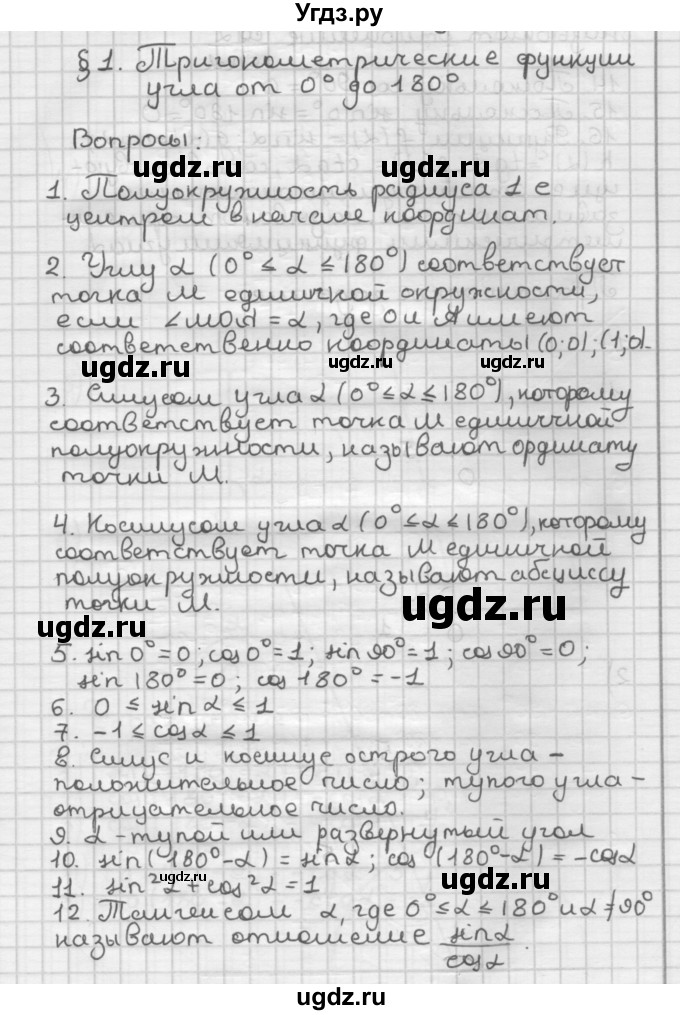 Угдз.ру
§1. Тригонометрические функции
угла от 0° до 180°
Вопросы:
ugdz.ru ugdz.ru
1. Полуокружность радиуса 1 с
центром в начале координат.
2. Углу α (0° ≤ α ≤ 180°) соответствует
точка М единичной окружности,
если ∠MOA = α, где О и А имеют
соответственно координаты (0;0);(1;0).
ugdz.ru ugdz.ru ugdz.ru
3. Синусом угла α (0° ≤ α ≤ 180°), которому
соответствует точка М единичной
полуокружности, называют ординату
точки М.
4. Косинусом угла α (0° ≤ α ≤ 180°), которому
соответствует точка М единичной
полуокружности, называют абсциссу
точки М.
ugdz.ru ugdz.ru
5. sin 0° = 0; cos 0° = 1; sin 90° = 1; cos 90° = 0;
sin 180° = 0; cos 180° = -1
6. 0 ≤ sin α ≤ 1
7. -1 ≤ cos α ≤ 1
8. Синус и косинус острого угла -
положительное число; тупого угла -
отрицательное число.
9. α - тупой или развернутый угол
10. sin(180°-α) = sin α; cos (180°-α) = -cos α
ugdz.ru ugdz.ru
11. sin²α + cos²α = 1
12. Тангенсом α, где 0° ≤ α ≤ 180° и α ≠ 90°
называют отношение sin α / cos α.
ugdz.ru
ugdz.ru